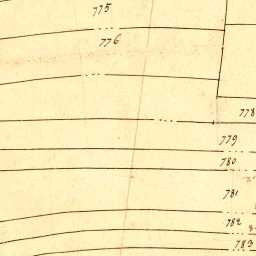 775
776
778
779
780
781
782
783